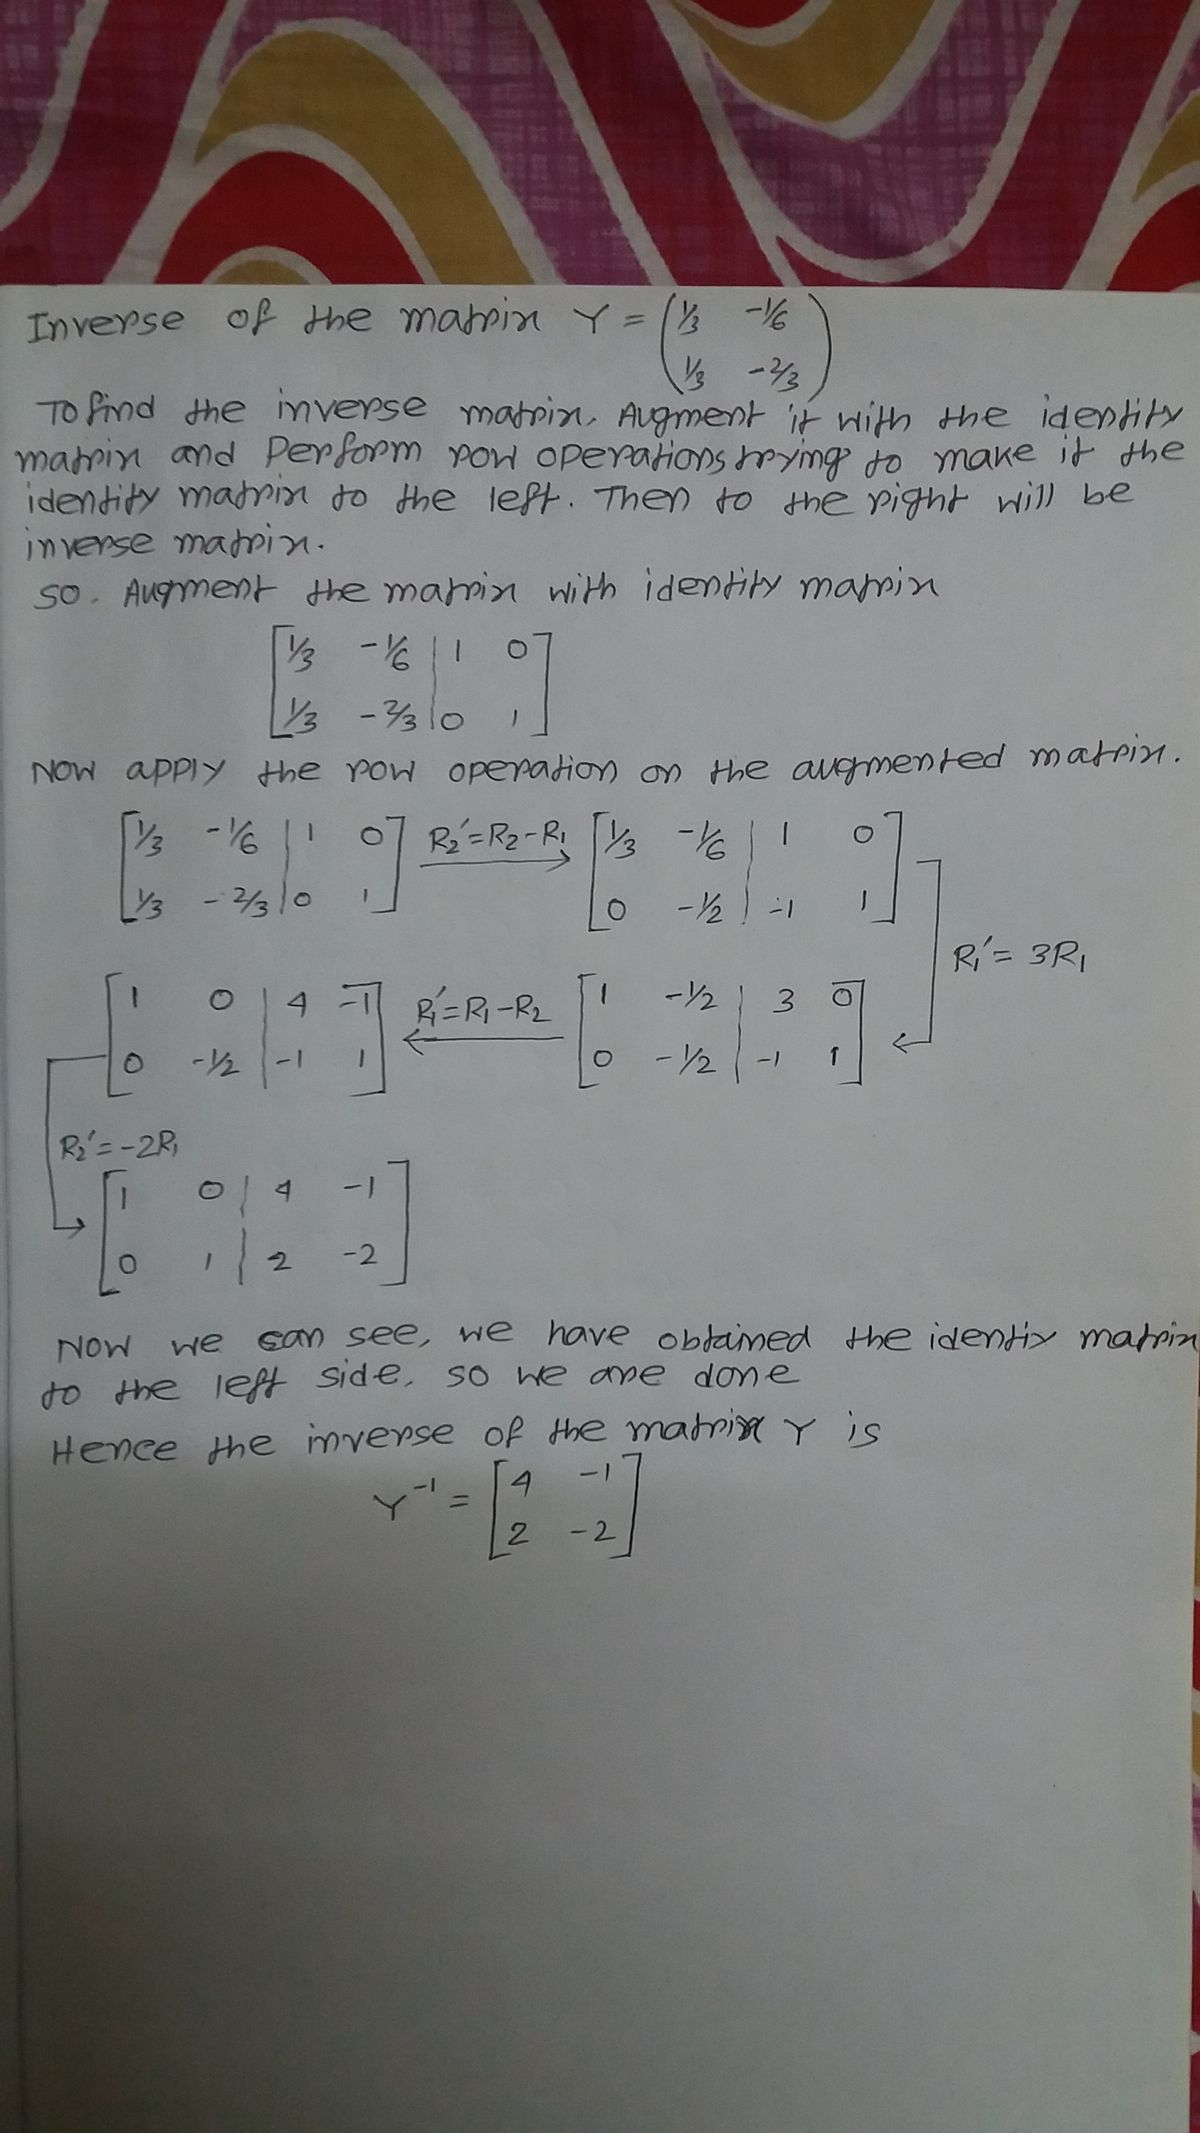 Inverse of the matrix Y = (1/3 -1/6
1/3 -2/3)
To find the inverse matrix, Augment it with the identity
matrix and Perform row operations trying to make it the
identity matrix to the left. Then to the right will be
inverse matrix.
So. Augment the matrix with identity matrix
[1/3 -1/6 | 1 0]
[1/3 -2/3 | 0 1]
Now apply the row operation on the augmented matrix.
[1/3 -1/6 | 1 0] R2'=R2-R1 [1/3 -1/6 | 1 0]
[1/3 -2/3 | 0 1] → [0 -1/2 | -1 1]
R1' = 3R1
[1 0 | 4 -1] R1'=R1-R2 [1 -1/2 | 3 0]
[0 -1/2 | -1 1] ← [0 -1/2 | -1 1]
R2'=-2R1
[1 0 | 4 -1]
[0 1 | 2 -2]
Now we can see, we have obtained the identix matrix
to the left side, so we are done
Hence the inverse of the matrix Y is
Y⁻¹ = [4 -1]
[2 -2]